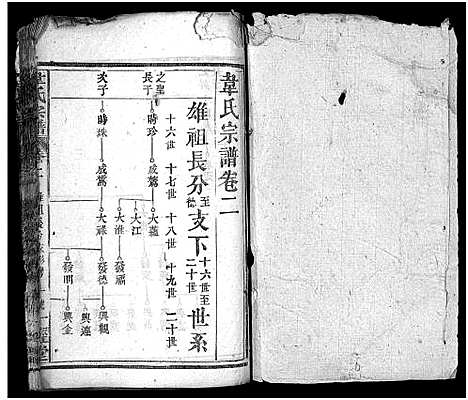 韋氏宗譜卷二
雄祖長分至德支下十六世至二十世世系
十六世 十七世 十八世 十九世 二十世
之聖長子 時珍 成鸞 大蘊
大江
大淮 發福
次子 時珠 成鸞 大祿 發德 興觀
興連
發明 興金
韋氏宗譜